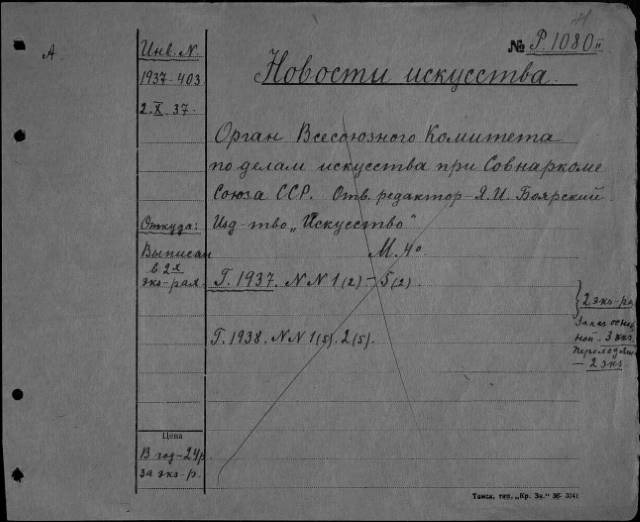 № Р. 1080 II
А
Инв. N.
1937-403
2.X.37.
Новости искусства.
Орган Всесоюзного Комитета
по делам искусства при Совнаркоме
Союза ССР. Отв. редактор - Я.И. Боярский.
Изд-тво „Искусство"
М. 4°
Откуда:
Выписан
в 2х
экз-рах
Г. 1937. NN 1(2) - 5(2).
2 экз-ра
3 экз.
2 экз
Г. 1938. NN 1(5). 2(5).
Цена
В год-24р
за экз-р.
Томск, тип. „Кр. Зн." 36- 3241